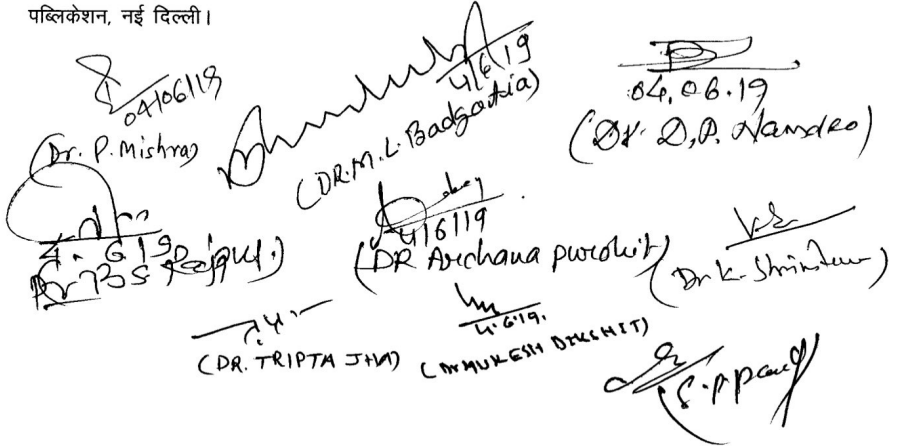 पब्लिकेशन, नई दिल्ली।
04/06/19
(Dr. P. Mishra)
4/6/19
(DR. M. L. Badgotia)
04.06.19
(Dr. D.P. Namdeo)
4.6.19
Dr BS Rajput)
4/6/19
(DR Archana purohit)
Dr K.
(DR. TRIPTA JHA)
4.6.19.
(Dr MUKESH DIKSHIT)